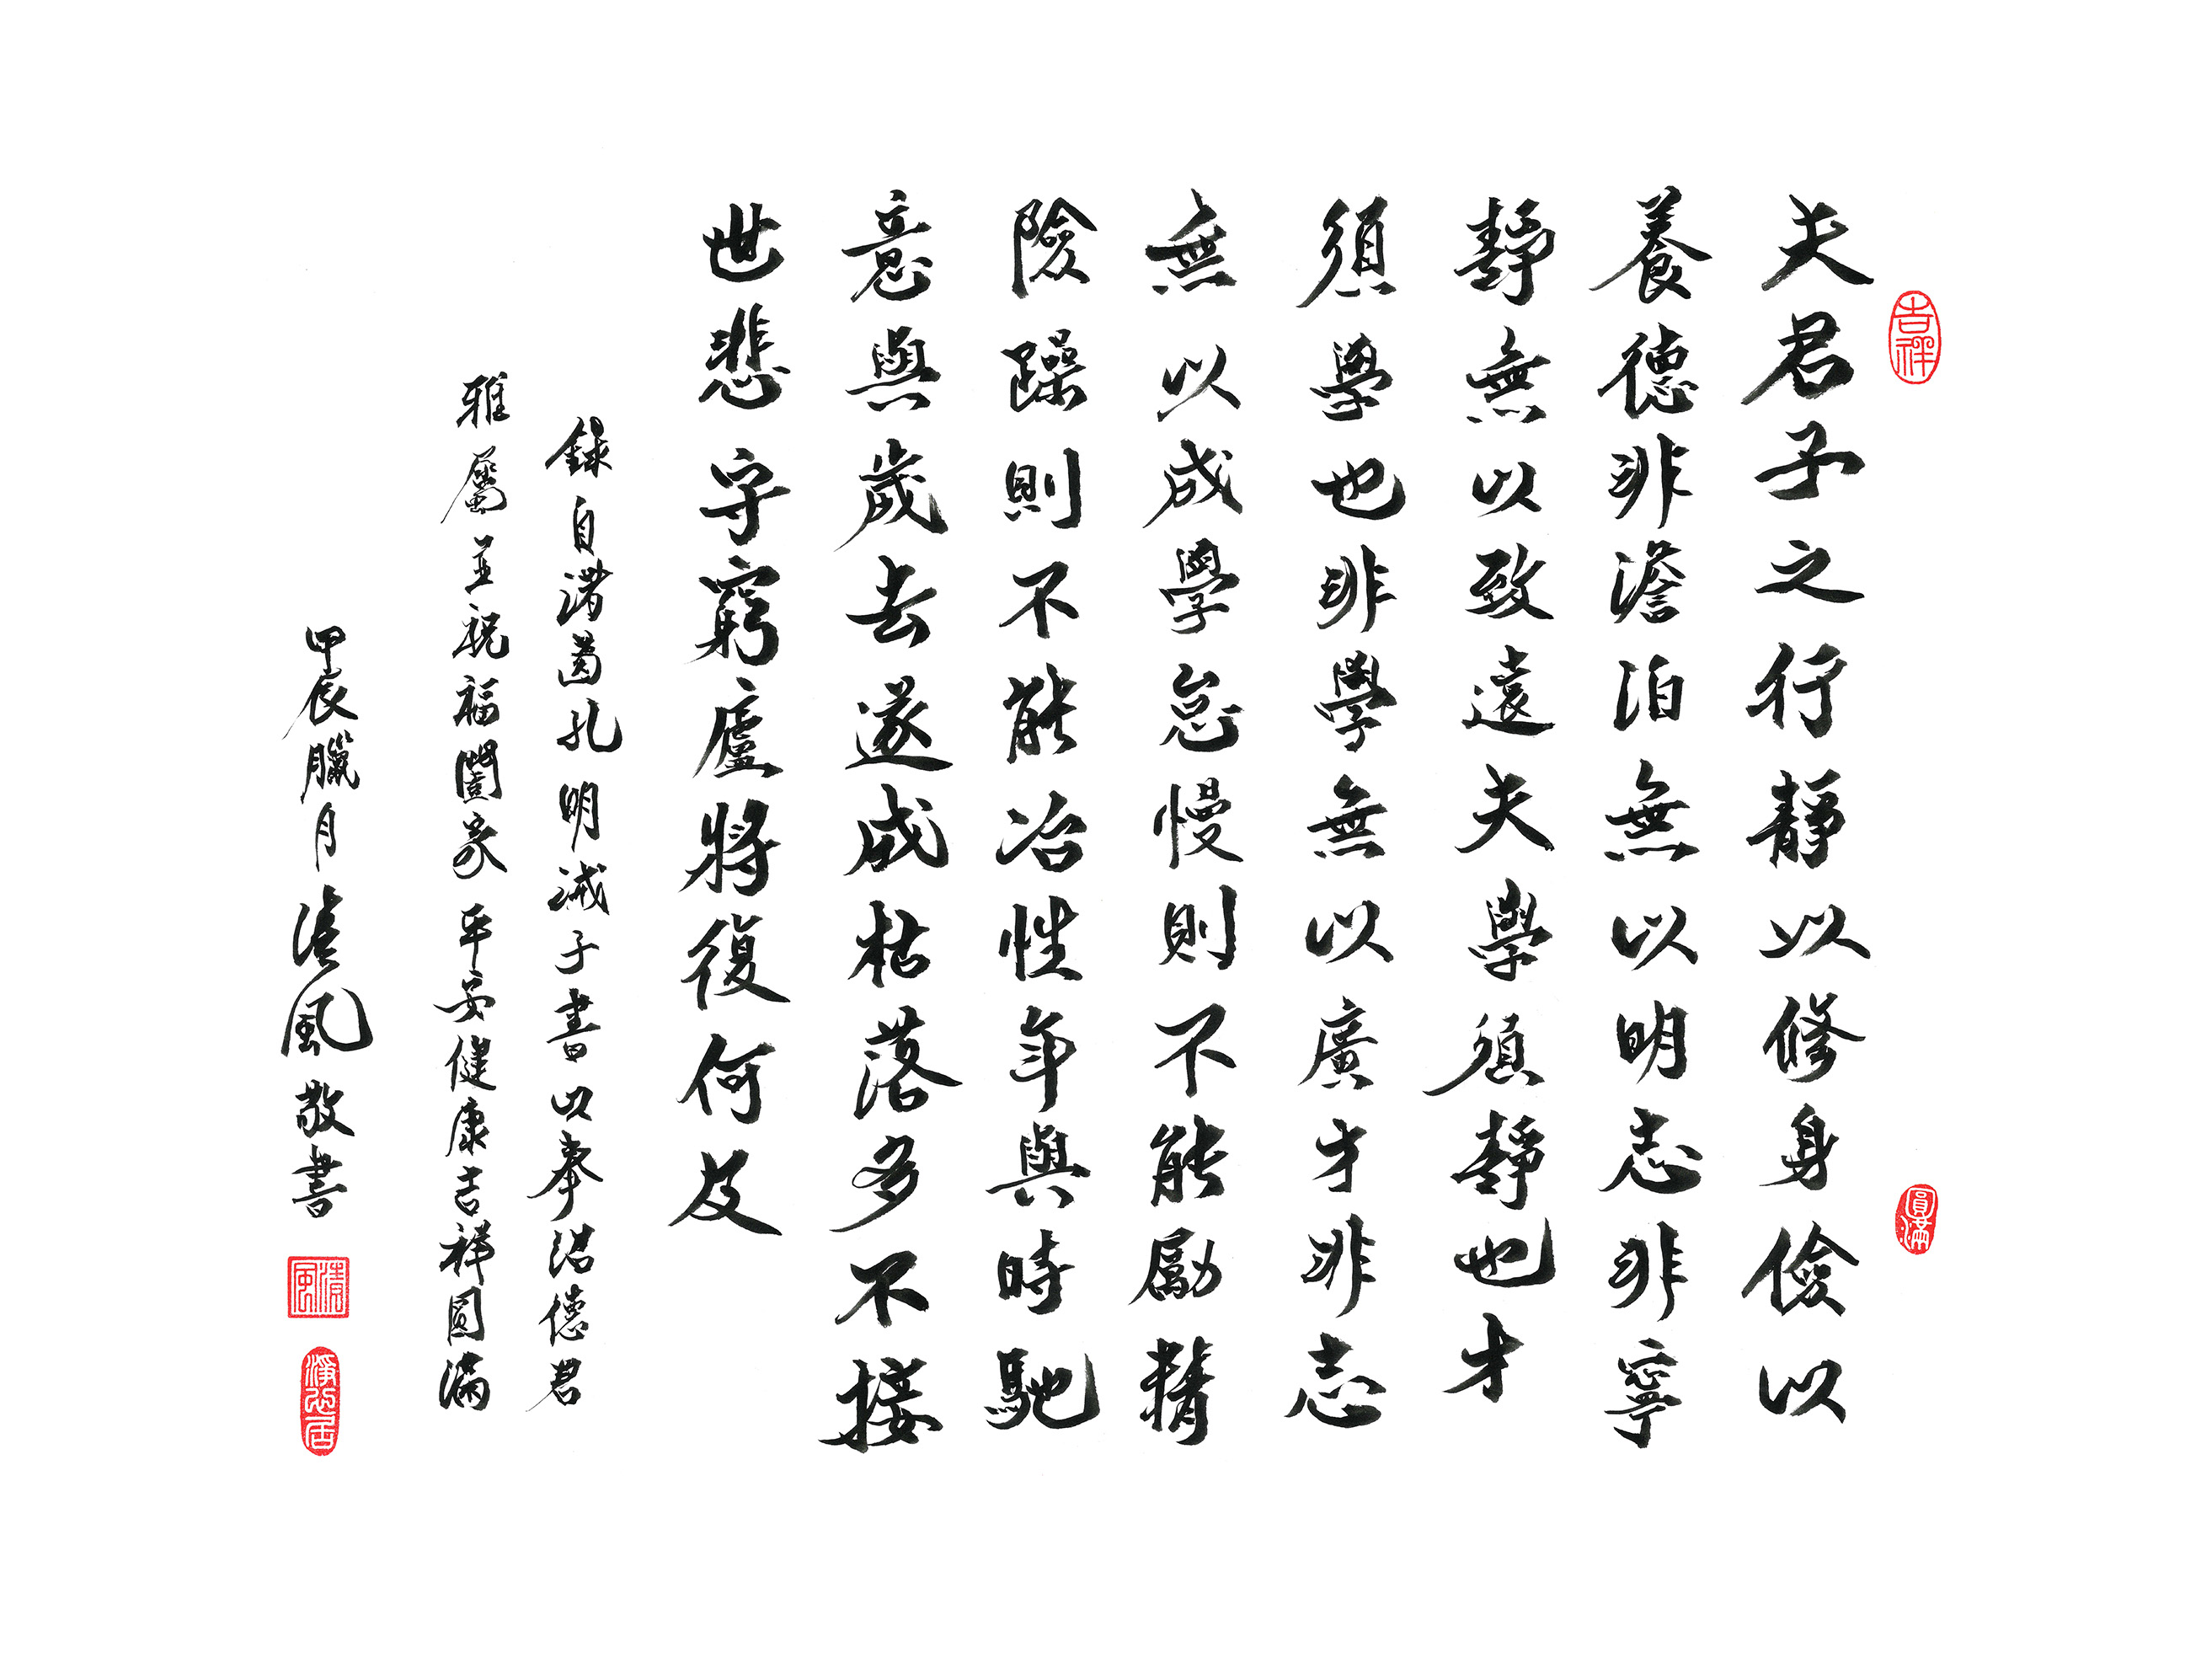 吉祥
圓滿
夫君子之行靜以修身儉以
養德非澹泊無以明志非寧
靜無以致遠夫學須靜也才
須學也非學無以廣才非志
無以成學怠慢則不能勵精
險躁則不能冶性年與時馳
意與歲去遂成枯落多不接
世悲守窮廬將復何及
錄自諸葛孔明誡子書以奉德君
雅屬並祝福闔家平安健康吉祥圓滿
甲辰臘月清風敬書
清風
淨心居